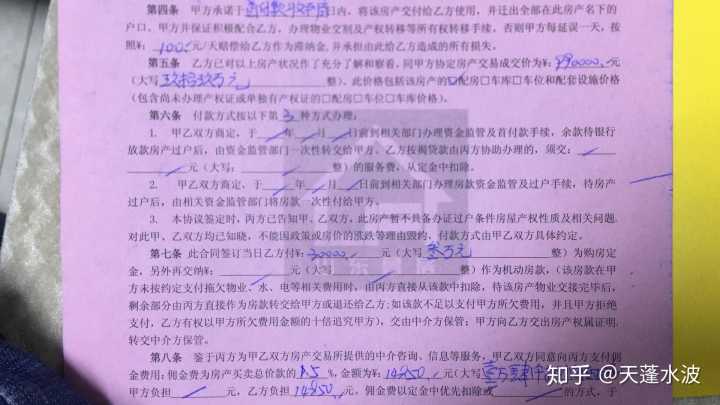 第四条 甲方承诺于首付款给清后日内，将该房产交付给乙方使用，并迁出全部在此房产名下的
户口。甲方并保证积极配合乙方，办理物业交割及产权转移等所有权转移手续，否则甲方每延误一天，按
照¥: 100 元/天赔偿给乙方作为滞纳金，并承担由此给乙方造成的所有损失。
第五条 乙方已对以上房产状况作了充分了解和察看，同甲方协定房产交易成交价为¥: 990000 元
（大写 玖拾玖万元 整）。此价格包括该房产的配房□车库□车位和配套设施价格
（包含尚未办理产权证或单独有产权证的□配房□车位□车库价格）。
第六条 付款方式按以下第 3 种方式办理：
1. 甲乙双方商定，于 年 月 日前到相关部门办理资金监管及首付款手续，余款待银行
放款房产过户后，由资金监管部门一次性转交给甲方。乙方按揭贷款由丙方协助办理的，须交：
元（大写： 整）的服务费，从定金中扣除。
2. 甲乙双方商定，于 年 月 日前到相关部门办理房款资金监管及过户手续，待房产
过户后，由相关资金监管部门将房款一次性付给甲方。
3. 本协议签定时，丙方已告知甲、乙双方，此房产暂不具备办证过户条件房屋产权性质及相关问题，
对此甲、乙双方均已知晓，不能因政策或房价的涨跌等理由毁约，付款方式由甲乙双方具体约定。
第七条 此合同签订当日乙方付¥: 30000 元（大写 叁万元 整）为购房定
金，另外再交纳¥: 元（大写 整）作为机动房款，（该房款在甲
方未按约定支付拖欠物业、水、电等相关费用时，由丙方直接从该款中扣除，待该房产物业交接完毕后，
剩余部分由丙方直接作为房款转交给甲方或退还给乙方；如该款不足以支付甲方所欠费用，并且甲方拒绝
支付，乙方有权以甲方所欠费用金额的十倍追究甲方），交由中介方保管；甲方向乙方交出房产权属证明，
转交中介方保管。
第八条 鉴于丙方为甲乙双方房产交易所提供的中介咨询、信息等服务，甲乙双方同意向丙方支付佣
金费用；佣金费为房产买卖总价款的 1.5 %，金额为¥: 14850 元（大写 壹万肆仟
甲方负担 元，乙方负担 14850 元，佣金费以定金中优先扣除或 的方式，于
知乎 @天蓬水波